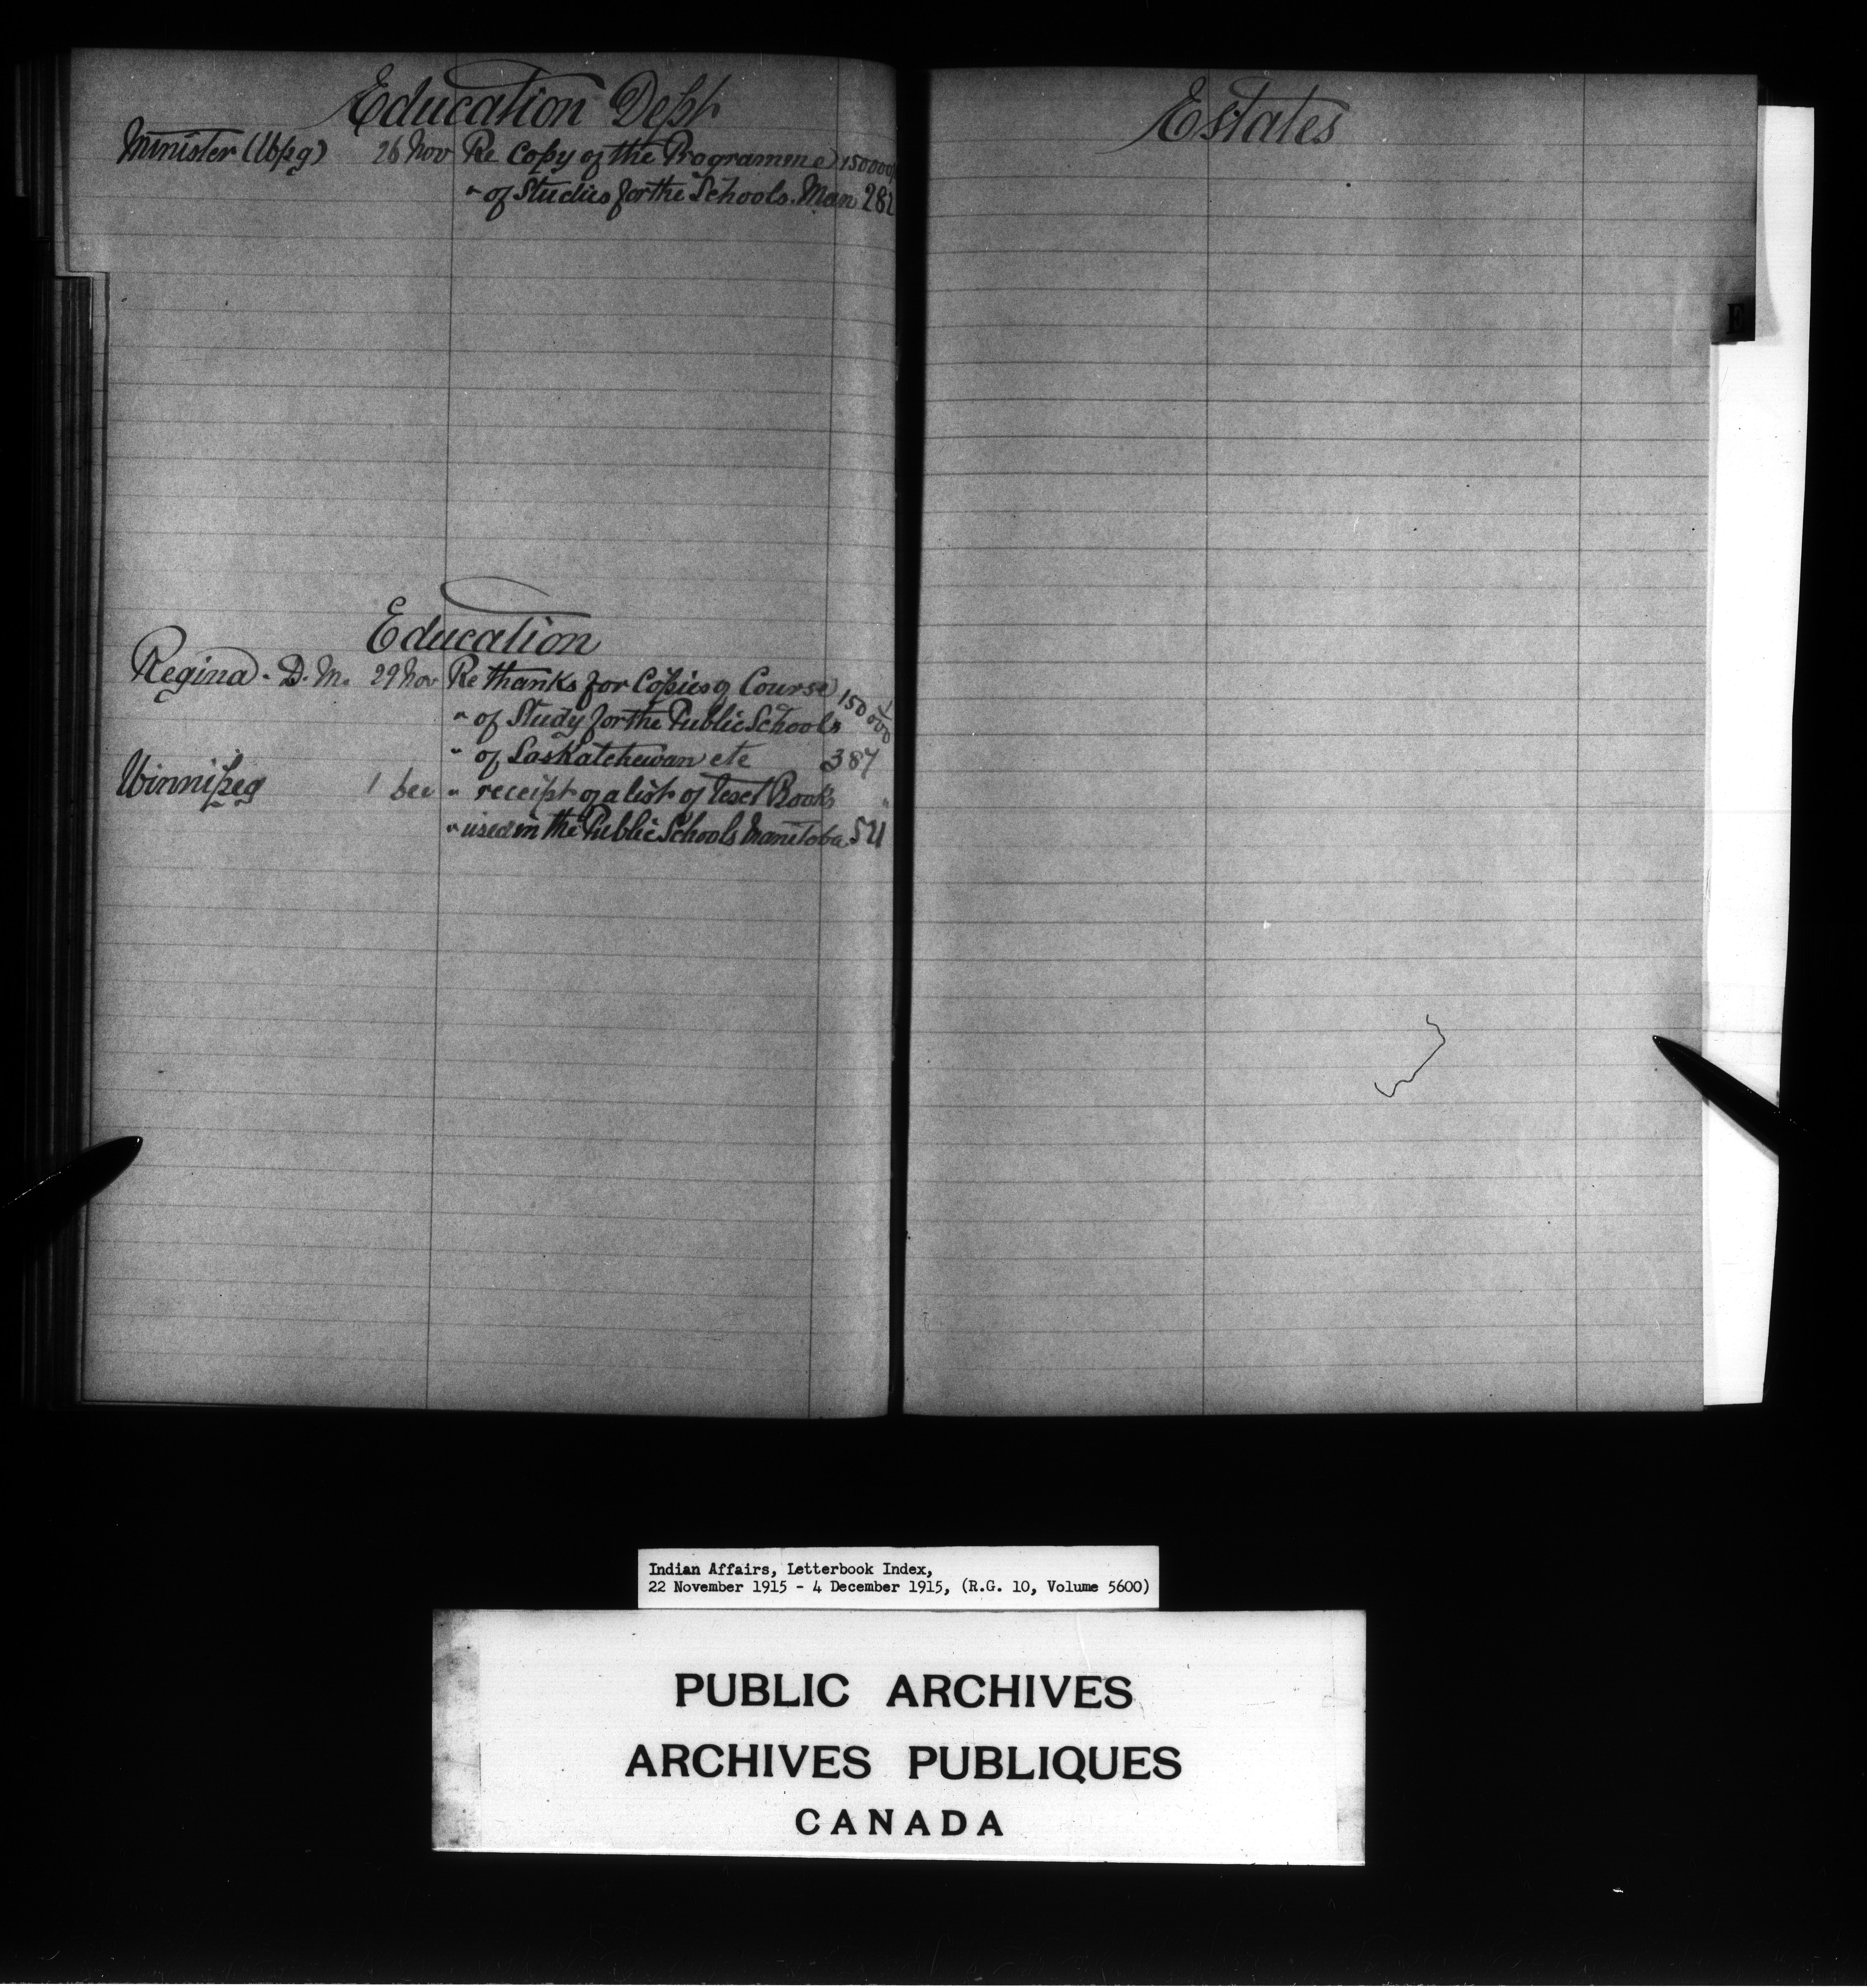 Education Dept
Minister (Wpg) 26 Nov Re Copy of the Programme 150000
" of Studies for the Schools. Man 282
Education
Regina. D. M. 29 Nov Re thanks for Copies of Course 150000
" of Study for the Public Schools
" of Saskatchewan etc 387
Winnipeg 1 Dec " receipt of a list of Text Books "
" used in the Public Schools Manitoba 511
Estates
E
Indian Affairs, Letterbook Index,
22 November 1915 - 4 December 1915, (R.G. 10, Volume 5600)
PUBLIC ARCHIVES
ARCHIVES PUBLIQUES
CANADA